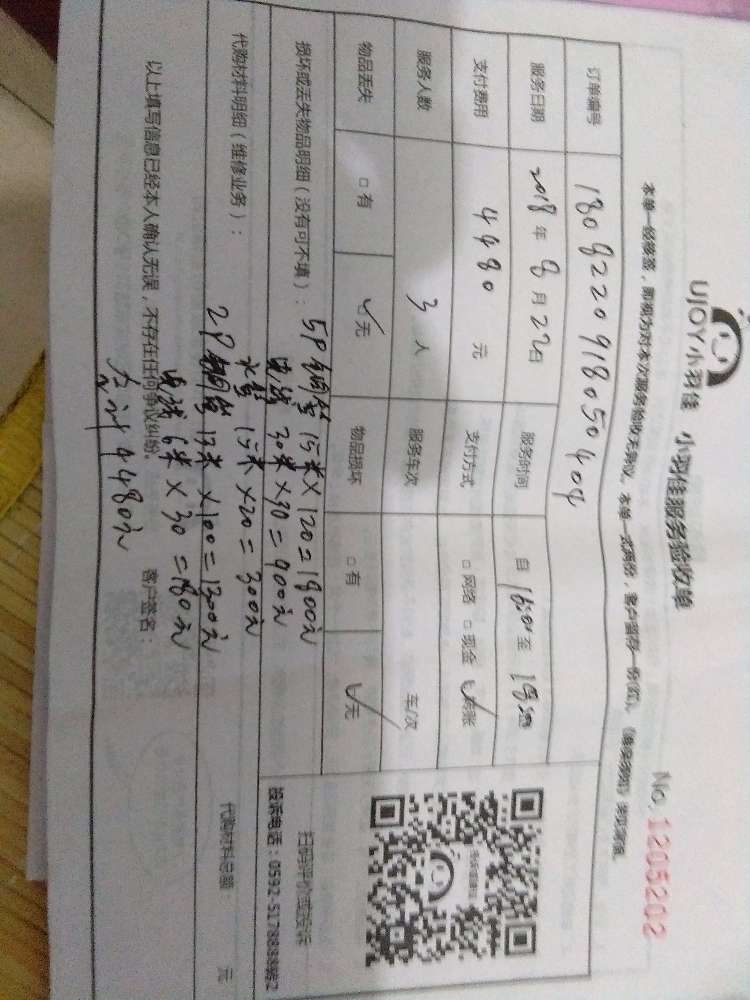 UJOY小羽佳 小羽佳服务验收单
No. 1205202
订单编号 180822091805 0404
服务日期 2018年8月22日 服务时间 自 16:00 至 19:00
支付费用 4480 元 支付方式 □网络 □现金 ☑转账
服务人数 3 人 服务车次 车/次
物品丢失 □有 ☑无 物品损坏 □有 ☑无
损坏或丢失物品明细(没有可不填):
扫码评价或投诉
投诉电话:0592-5178888转2
5P铜管 15米×120=1800元
电线 30米×30=900元
代购材料明细(维修业务):
水管 15米×20=300元
2P铜管 13米×100=1300元
代购材料总额: 元
电线 6米×30=180元
以上填写信息已经本人确认无误,不存在任何争议纠纷。 客户签名:
合计4480元